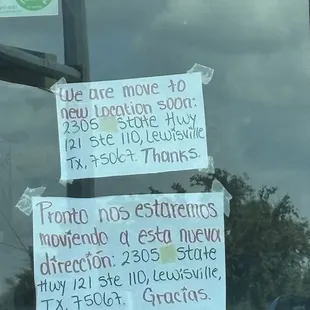 We are move to
new Location soon:
2305 State Hwy
121 ste 110, Lewisville
TX, 75067. Thanks.
Pronto nos estaremos
moviendo a esta nueva
dirección: 2305 State
Hwy 121 ste 110, Lewisville,
TX, 75067. Gracias.